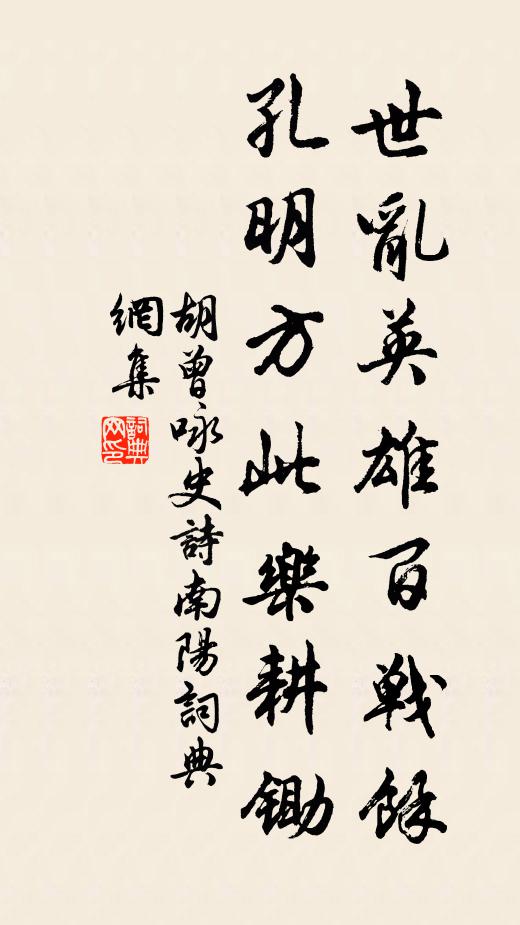 世亂英雄百戰餘
孔明方此樂耕鋤
胡曾咏史詩南陽詞典
網集
詞典
网印